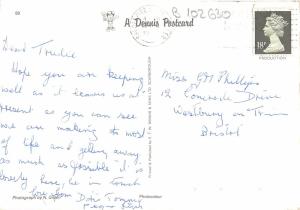 69
A Dennis Postcard
B 102630
18P
PRODUCTION
Dear Trudie
Hope you are keeping
well as it leaves us at
present as you can see
we are making the most
of life and getting away
as much as possible it is
lovely here, be in touch
love from Dot & Tommy
Miss GM Phillips
12 Concorde Drive
Westbury on Trym
Bristol
Photograph by
Photocolour